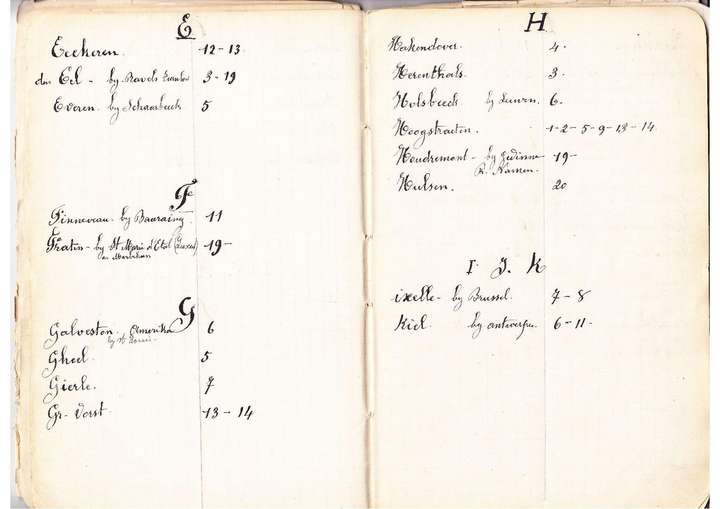 E
Eeckeren. 12-13.
den Eel - by Ravels 3-19
Everen. by Schaarbeeck 5
F
Finneveau. by Bauraing. 11
Fratin - by St Marie d'Etal (Luxed) -19-
G
Galveston. Amerika 6
by St Louis.
Gheel. 5
Gierle. 7
Gr- Vorst 13-14
H
Hakendover. 4.
Herenthals. 3.
Holsbeeck by Leuven. 6.
Hoogstraeten. 1-2-5-9-13-14
Houdremont - by Gedinne -19-
P. Namen.
Hulsen. 20
I. J. K
ixelle - by Brussel. 7-8
Kiel. by antwerpen. 6-11-